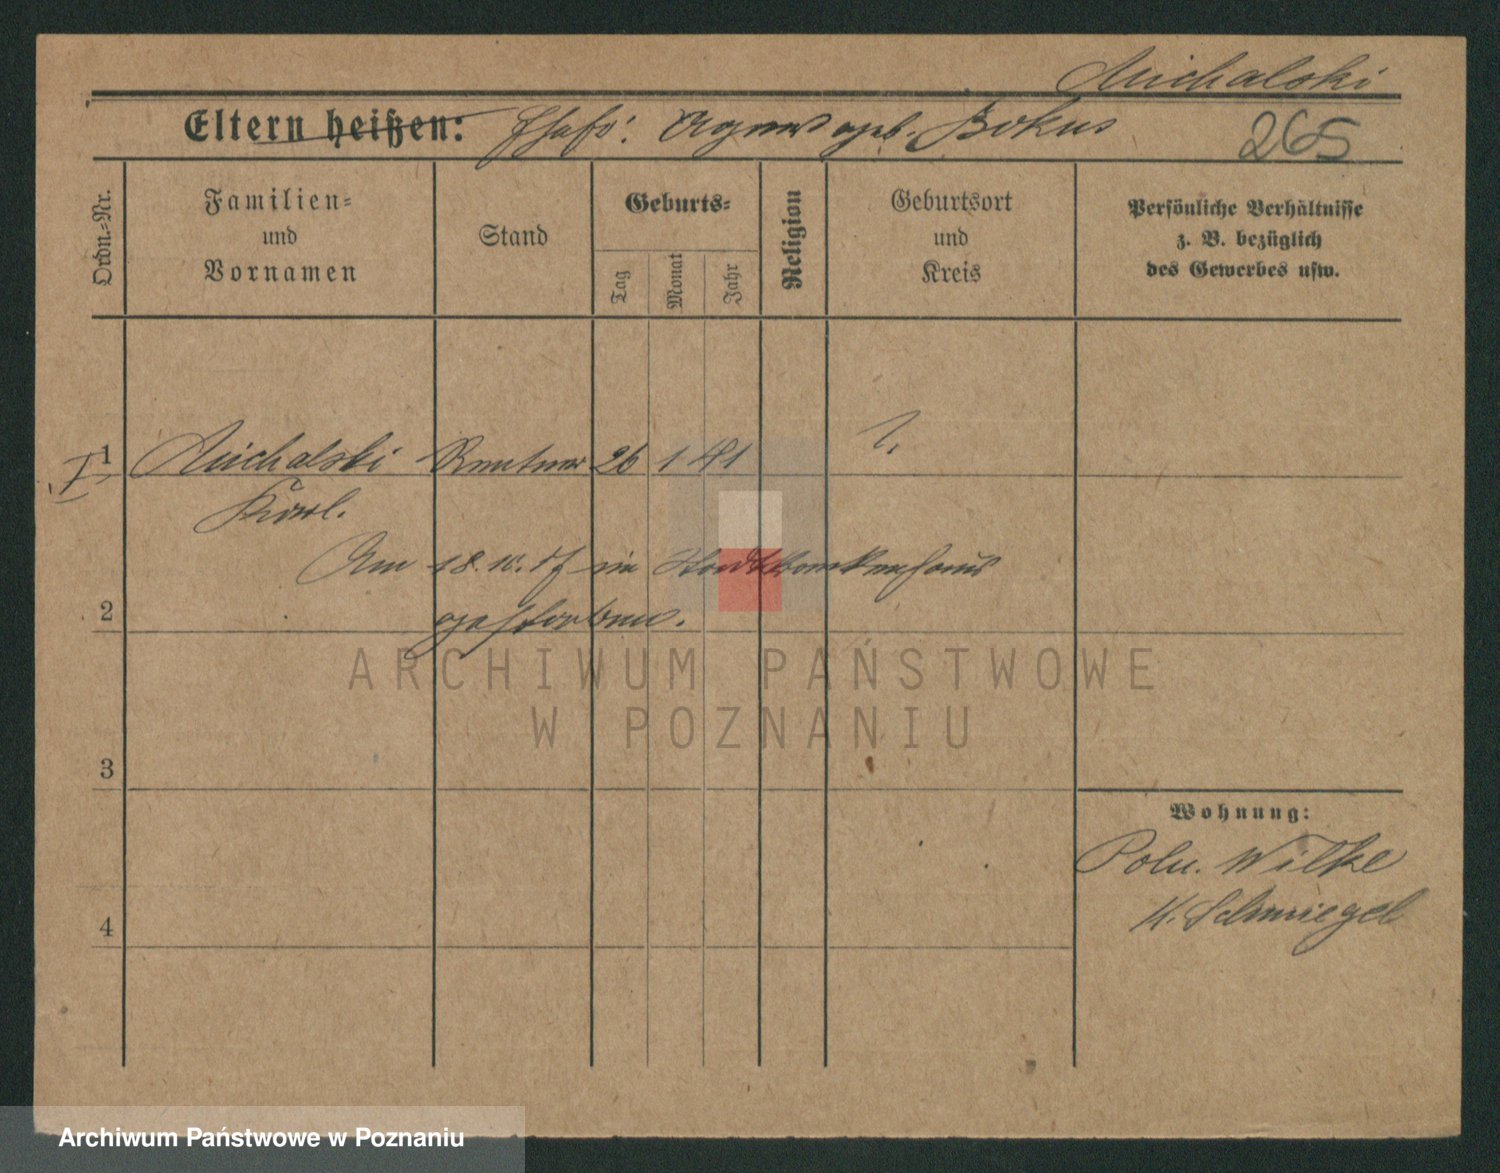 Michalski
Eltern heißen: Ehefr: Agnes geb. Bokus
265
Ordn.-Nr.
Familien-
und
Vornamen
Stand
Geburts-
Tag
Monat
Jahr
Religion
Geburtsort
und
Kreis
Persönliche Verhältnisse
z. B. bezüglich
des Gewerbes usw.
I 1 Michalski Rentner 26 1 41 ?.
Karl.
Am 18.10.17 im Stadtkrankenhaus
2 gestorben.
ARCHIWUM PAŃSTWOWE
W POZNANIU
3
Wohnung:
Poln. Wilke
K. Schmiegel
4
Archiwum Państwowe w Poznaniu